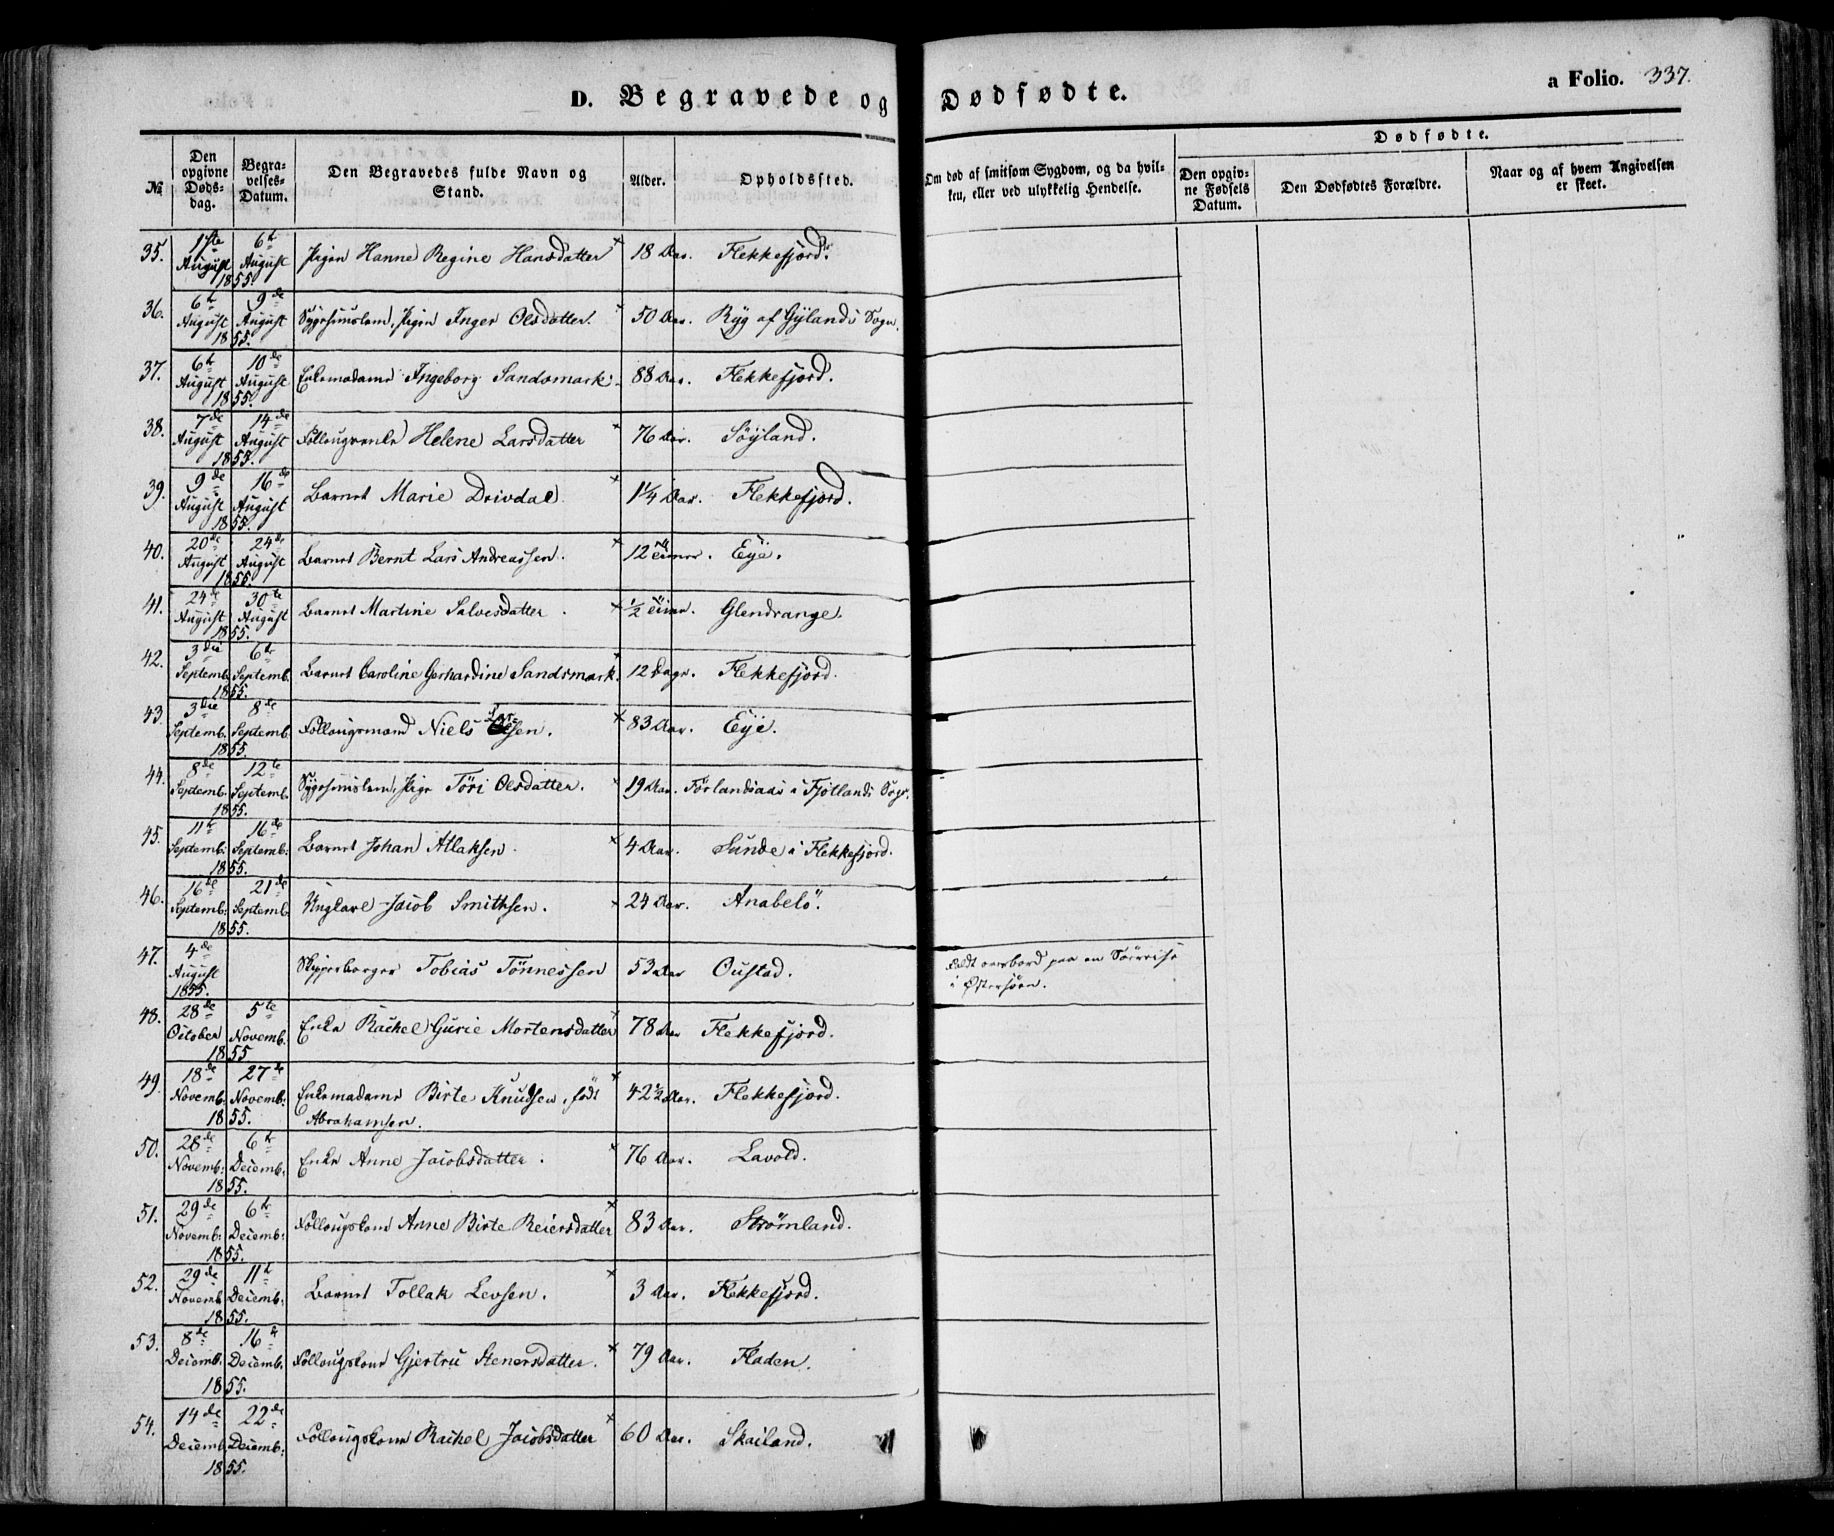 D. Begravede og Dødfødte.
a Folio. 337.
No.
Den opgivne Døds-dag.
Begra-velses-Datum.
Den Begravedes fulde Navn og Stand.
Alder.
Opholdssted.
Om død af smitsom Sygdom, og da hvil-ken, eller ved ulykkelig Hendelse.
Dødfødte.
Den opgiv-ne Fødsels Datum.
Den Dødfødtes Forældre.
Naar og af hvem Angivelsen er skeet.
35. 1ste August 6te August 1855. Pigen Hanne Regine Hansdatter × 18 Aar. Flekkefjord.
36. 6te August 9de August 1855. Sygehuuslem, Pigen Inger Olsdatter. × 50 Aar. Ryg af Gylands Sogn.
37. 6te August 10de August 1855. Enkemadame Ingeborg Sandsmark. 88 Aar. Flekkefjord.
38. 7de August 14de August 1855. Follougsenke Helene Larsdatter × 76 Aar. Söyland.
39. 9de August 16de August 1855. Barnet Marie Drivdal × 1 1/4 Aar. Flekkefjord.
40. 20de August 24de August 1855. Barnet Bernt Lars Andreassen. × 12 Timer. Eye.
41. 24de August 30te August 1855. Barnet Martine Salvesdatter. × 1/2 Time. Glendrange.
42. 3die Septemb. 6te Septemb. 1855. Barnet Caroline Gerhardine Sandsmark. × 12 Dage. Flekkefjord.
43. 3die Septemb. 8de Septemb. 1855. Follougsmand Niels Olsen. × 83 Aar. Eye.
44. 8de Septemb. 12te Septemb. 1855. Sygehuuslem, Pige Töri Olsdatter. × 19 Aar. Förlandsaas i Fjotlands Sogn.
45. 11te Septemb: 16de Septemb: 1855. Barnet Johan Atlaksen. × 4 Aar. Sunde i Flekkefjord.
46. 16de Septemb: 21de Septemb. 1855. Ungkarl Jacob Smithsen. × 24 Aar. Anabelö.
47. 4de August 1855. Skipperborger Tobias Tönnessen 53 Aar Oustad. Faldt overbord paa en Söereise
i Østersöen.
48. 28de October 5te Novemb. 1855 Enke Rachel Gurie Mortensdatter × 78 Aar Flekkefjord.
49. 18de Novemb. 27de Novemb: 1855. Enkemadame Birte Knudsen, född × 42 1/2 Aar. Flekkefjord.
Abrahamsen.
50. 28de Novemb: 6te Decemb: 1855. Enke Anne Jacobsdatter. × 76 Aar. Lavold.
51. 29de Novemb: 6te Decemb: 1855. Follougskone Anne Birte Reiersdatter × 83 Aar. Strømland.
52. 29de Novemb 11te Decemb: 1855. Barnet Tollak Levsen. × 3 Aar. Flekkefjord.
53. 8de Decemb. 16de Decemb: 1855. Follougskone Gjertru Stenersdatter. × 79 Aar. Fladen.
54. 14de Decemb. 22de Decemb: 1855. Follougskone Rachel Jacobsdatter × 60 Aar. Skailand.